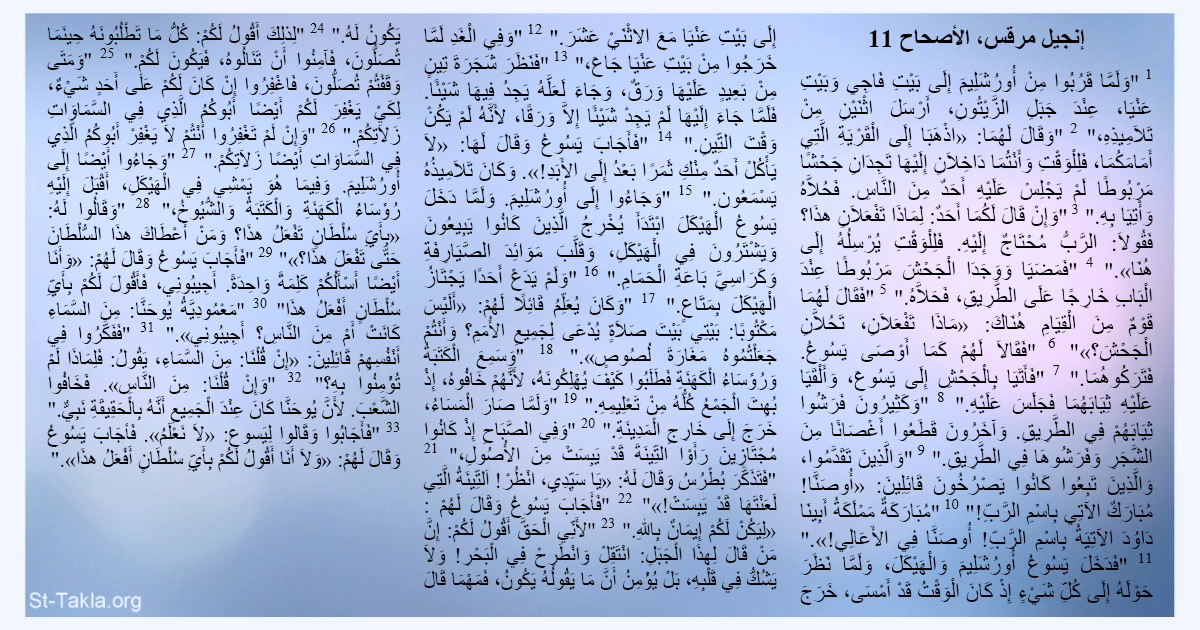 إنجيل مرقس، الأصحاح 11
1 "وَلَمَّا قَرُبُوا مِنْ أُورُشَلِيمَ إِلَى بَيْتِ فَاجِي وَبَيْتِ
عَنْيَا، عِنْدَ جَبَلِ الزَّيْتُونِ، أَرْسَلَ اثْنَيْنِ مِنْ
تَلاَمِيذِهِ،" 2 "وَقَالَ لَهُمَا: «اذْهَبَا إِلَى الْقَرْيَةِ الَّتِي
أَمَامَكُمَا، فَلِلْوَقْتِ وَأَنْتُمَا دَاخِلاَنِ إِلَيْهَا تَجِدَانِ جَحْشًا
مَرْبُوطًا لَمْ يَجْلِسْ عَلَيْهِ أَحَدٌ مِنَ النَّاسِ. فَحُلاَّهُ
وَأْتِيَا بِهِ." 3 "وَإِنْ قَالَ لَكُمَا أَحَدٌ: لِمَاذَا تَفْعَلاَنِ هذَا؟
فَقُولاَ: الرَّبُّ مُحْتَاجٌ إِلَيْهِ. فَلِلْوَقْتِ يُرْسِلُهُ إِلَى
هُنَا»." 4 "فَمَضَيَا وَوَجَدَا الْجَحْشَ مَرْبُوطًا عِنْدَ
الْبَابِ خَارِجًا عَلَى الطَّرِيقِ، فَحَلاَّهُ." 5 "فَقَالَ لَهُمَا
قَوْمٌ مِنَ الْقِيَامِ هُنَاكَ: «مَاذَا تَفْعَلاَنِ، تَحُلاَّنِ
الْجَحْشَ؟»" 6 "فَقَالاَ لَهُمْ كَمَا أَوْصَى يَسُوعُ.
فَتَرَكُوهُمَا." 7 "فَأَتَيَا بِالْجَحْشِ إِلَى يَسُوعَ، وَأَلْقَيَا
عَلَيْهِ ثِيَابَهُمَا فَجَلَسَ عَلَيْهِ." 8 "وَكَثِيرُونَ فَرَشُوا
ثِيَابَهُمْ فِي الطَّرِيقِ. وَآخَرُونَ قَطَعُوا أَغْصَانًا مِنَ
الشَّجَرِ وَفَرَشُوهَا فِي الطَّرِيقِ." 9 "وَالَّذِينَ تَقَدَّمُوا،
وَالَّذِينَ تَبِعُوا كَانُوا يَصْرُخُونَ قَائِلِينَ: «أُوصَنَّا!
مُبَارَكٌ الآتِي بِاسْمِ الرَّبِّ!" 10 "مُبَارَكَةٌ مَمْلَكَةُ أَبِينَا
دَاوُدَ الآتِيَةُ بِاسْمِ الرَّبِّ! أُوصَنَّا فِي الأَعَالِي!»."
11 "فَدَخَلَ يَسُوعُ أُورُشَلِيمَ وَالْهَيْكَلَ، وَلَمَّا نَظَرَ
حَوْلَهُ إِلَى كُلِّ شَيْءٍ إِذْ كَانَ الْوَقْتُ قَدْ أَمْسَى، خَرَجَ
إِلَى بَيْتِ عَنْيَا مَعَ الاثْنَيْ عَشَرَ." 12 "وَفِي الْغَدِ لَمَّا
خَرَجُوا مِنْ بَيْتِ عَنْيَا جَاعَ،" 13 "فَنَظَرَ شَجَرَةَ تِينٍ
مِنْ بَعِيدٍ عَلَيْهَا وَرَقٌ، وَجَاءَ لَعَلَّهُ يَجِدُ فِيهَا شَيْئًا.
فَلَمَّا جَاءَ إِلَيْهَا لَمْ يَجِدْ شَيْئًا إِلاَّ وَرَقًا، لأَنَّهُ لَمْ يَكُنْ
وَقْتَ التِّينِ." 14 "فَأَجَابَ يَسُوعُ وَقَالَ لَهَا: «لاَ
يَأْكُلْ أَحَدٌ مِنْكِ ثَمَرًا بَعْدُ إِلَى الأَبَدِ!». وَكَانَ تَلاَمِيذُهُ
يَسْمَعُونَ." 15 "وَجَاءُوا إِلَى أُورُشَلِيمَ. وَلَمَّا دَخَلَ
يَسُوعُ الْهَيْكَلَ ابْتَدَأَ يُخْرِجُ الَّذِينَ كَانُوا يَبِيعُونَ
وَيَشْتَرُونَ فِي الْهَيْكَلِ، وَقَلَّبَ مَوَائِدَ الصَّيَارِفَةِ
وَكَرَاسِيَّ بَاعَةِ الْحَمَامِ." 16 "وَلَمْ يَدَعْ أَحَدًا يَجْتَازُ
الْهَيْكَلَ بِمَتَاعٍ." 17 "وَكَانَ يُعَلِّمُ قَائِلًا لَهُمْ: «أَلَيْسَ
مَكْتُوبًا: بَيْتِي بَيْتَ صَلاَةٍ يُدْعَى لِجَمِيعِ الأُمَمِ؟ وَأَنْتُمْ
جَعَلْتُمُوهُ مَغَارَةَ لُصُوصٍ»." 18 "وَسَمِعَ الْكَتَبَةُ
وَرُؤَسَاءُ الْكَهَنَةِ فَطَلَبُوا كَيْفَ يُهْلِكُونَهُ، لأَنَّهُمْ خَافُوهُ، إِذْ
بُهِتَ الْجَمْعُ كُلُّهُ مِنْ تَعْلِيمِهِ." 19 "وَلَمَّا صَارَ الْمَسَاءُ،
خَرَجَ إِلَى خَارِجِ الْمَدِينَةِ." 20 "وَفِي الصَّبَاحِ إِذْ كَانُوا
مُجْتَازِينَ رَأَوْا التِّينَةَ قَدْ يَبِسَتْ مِنَ الأُصُولِ،" 21
"فَتَذَكَّرَ بُطْرُسُ وَقَالَ لَهُ: «يَا سَيِّدِي، انْظُرْ! اَلتِّينَةُ الَّتِي
لَعَنْتَهَا قَدْ يَبِسَتْ!»" 22 "فَأَجَابَ يَسُوعُ وَقَالَ لَهُمْ :
«لِيَكُنْ لَكُمْ إِيمَانٌ بِاللهِ." 23 "لأَنِّي الْحَقَّ أَقُولُ لَكُمْ: إِنَّ
مَنْ قَالَ لِهذَا الْجَبَلِ: انْتَقِلْ وَانْطَرِحْ فِي الْبَحْرِ! وَلاَ
يَشُكُّ فِي قَلْبِهِ، بَلْ يُؤْمِنُ أَنَّ مَا يَقُولُهُ يَكُونُ، فَمَهْمَا قَالَ
يَكُونُ لَهُ." 24 "لِذلِكَ أَقُولُ لَكُمْ: كُلُّ مَا تَطْلُبُونَهُ حِينَمَا
تُصَلُّونَ، فَآمِنُوا أَنْ تَنَالُوهُ، فَيَكُونَ لَكُمْ." 25 "وَمَتَى
وَقَفْتُمْ تُصَلُّونَ، فَاغْفِرُوا إِنْ كَانَ لَكُمْ عَلَى أَحَدٍ شَيْءٌ،
لِكَيْ يَغْفِرَ لَكُمْ أَيْضًا أَبُوكُمُ الَّذِي فِي السَّمَاوَاتِ
زَلاَتِكُمْ." 26 "وَإِنْ لَمْ تَغْفِرُوا أَنْتُمْ لاَ يَغْفِرْ أَبُوكُمُ الَّذِي
فِي السَّمَاوَاتِ أَيْضًا زَلاَتِكُمْ." 27 "وَجَاءُوا أَيْضًا إِلَى
أُورُشَلِيمَ. وَفِيمَا هُوَ يَمْشِي فِي الْهَيْكَلِ، أَقْبَلَ إِلَيْهِ
رُؤَسَاءُ الْكَهَنَةِ وَالْكَتَبَةُ وَالشُّيُوخُ،" 28 "وَقَالُوا لَهُ:
«بِأَيِّ سُلْطَانٍ تَفْعَلُ هذَا؟ وَمَنْ أَعْطَاكَ هذَا السُّلْطَانَ
حَتَّى تَفْعَلَ هذَا؟»" 29 "فَأَجَابَ يَسُوعُ وَقَالَ لَهُمْ: «وَأَنَا
أَيْضًا أَسْأَلُكُمْ كَلِمَةً وَاحِدَةً. أَجِيبُونِي، فَأَقُولَ لَكُمْ بِأَيِّ
سُلْطَانٍ أَفْعَلُ هذَا" 30 "مَعْمُودِيَّةُ يُوحَنَّا: مِنَ السَّمَاءِ
كَانَتْ أَمْ مِنَ النَّاسِ؟ أَجِيبُونِي»." 31 "فَفَكَّرُوا فِي
أَنْفُسِهِمْ قَائِلِينَ: «إِنْ قُلْنَا: مِنَ السَّمَاءِ، يَقُولُ: فَلِمَاذَا لَمْ
تُؤْمِنُوا بِهِ؟" 32 "وَإِنْ قُلْنَا: مِنَ النَّاسِ». فَخَافُوا
الشَّعْبَ. لأَنَّ يُوحَنَّا كَانَ عِنْدَ الْجَمِيعِ أَنَّهُ بِالْحَقِيقَةِ نَبِيٌّ."
33 "فَأَجَابُوا وَقَالوُا لِيَسُوعَ: «لاَ نَعْلَمُ». فَأَجَابَ يَسُوعُ
وَقَالَ لَهُمْ: «وَلاَ أَنَا أَقُولُ لَكُمْ بِأَيِّ سُلْطَانٍ أَفْعَلُ هذَا»."
St-Takla.org